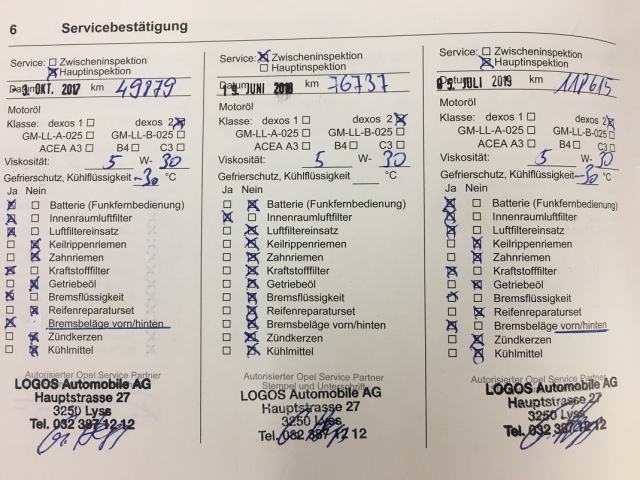 6 Servicebestätigung
Service: ☐ Zwischeninspektion
☒ Hauptinspektion
OKT. 2017 km 49879
Motoröl
Klasse: dexos 1 ☐ dexos 2 ☒
GM-LL-A-025 ☐ GM-LL-B-025 ☐
ACEA A3 ☐ B4 ☐ C3 ☐
Viskosität: 5 W- 30
Gefrierschutz, Kühlflüssigkeit -30 °C
Ja Nein
☒ ☐ Batterie (Funkfernbedienung)
☒ ☐ Innenraumluftfilter
☒ ☐ Luftfiltereinsatz
☐ ☒ Keilrippenriemen
☐ ☒ Zahnriemen
☒ ☐ Kraftstofffilter
☐ ☒ Getriebeöl
☒ ☐ Bremsflüssigkeit
☐ ☒ Reifenreparaturset
☒ ☐ Bremsbeläge vorn/hinten
☐ ☒ Zündkerzen
☐ ☒ Kühlmittel
Autorisierter Opel Service Partner
LOGOS Automobile AG
Hauptstrasse 27
3250 Lyss
Tel. 032 387 12 12
Service: ☒ Zwischeninspektion
☐ Hauptinspektion
Datum JUNI 2018 km 76737
Motoröl
Klasse: dexos 1 ☐ dexos 2 ☒
GM-LL-A-025 ☐ GM-LL-B-025 ☐
ACEA A3 ☐ B4 ☐ C3 ☐
Viskosität: 5 W- 30
Gefrierschutz, Kühlflüssigkeit °C
Ja Nein
☐ ☒ Batterie (Funkfernbedienung)
☒ ☐ Innenraumluftfilter
☐ ☒ Luftfiltereinsatz
☐ ☒ Keilrippenriemen
☐ ☒ Zahnriemen
☐ ☒ Kraftstofffilter
☐ ☒ Getriebeöl
☐ ☒ Bremsflüssigkeit
☐ ☒ Reifenreparaturset
☐ ☒ Bremsbeläge vorn/hinten
☐ ☒ Zündkerzen
☐ ☒ Kühlmittel
Autorisierter Opel Service Partner
Stempel und Unterschrift
LOGOS Automobile AG
Hauptstrasse 27
3250 Lyss
Tel. 032 387 12 12
Service: ☐ Zwischeninspektion
☒ Hauptinspektion
JULI 2019 km
Motoröl
Klasse: dexos 1 ☐ dexos 2 ☒
GM-LL-A-025 ☐ GM-LL-B-025 ☐
ACEA A3 ☐ B4 ☐ C3 ☐
Viskosität: 5 W- 30
Gefrierschutz, Kühlflüssigkeit -30 °C
Ja Nein
☒ ☐ Batterie (Funkfernbedienung)
☒ ☐ Innenraumluftfilter
☒ ☐ Luftfiltereinsatz
☐ ☒ Keilrippenriemen
☐ ☒ Zahnriemen
☒ ☐ Kraftstofffilter
☐ ☒ Getriebeöl
☒ ☐ Bremsflüssigkeit
☐ ☒ Reifenreparaturset
☒ ☐ Bremsbeläge vorn/hinten
☐ ☒ Zündkerzen
☐ ☒ Kühlmittel
Autorisierter Opel Service Partner
LOGOS Automobile AG
Hauptstrasse 27
3250 Lyss
Tel. 032 387 12 12